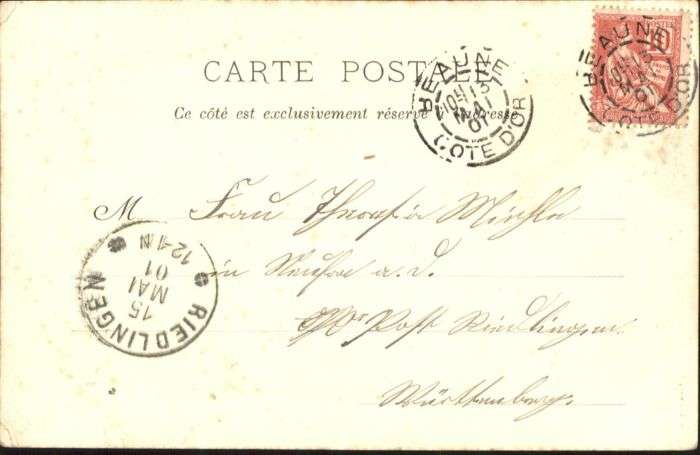 CARTE POSTALE
Ce côté est exclusivement réservé à l'adresse
BEAUNE
13
MAI
01
COTE D'OR
BEAUNE
13
MAI
01
COTE D'OR
10
M Frau Theresia
in a. d.
Post Riedlingen
Württemberg.
RIEDLINGEN
15
MAI
01
12-1 N